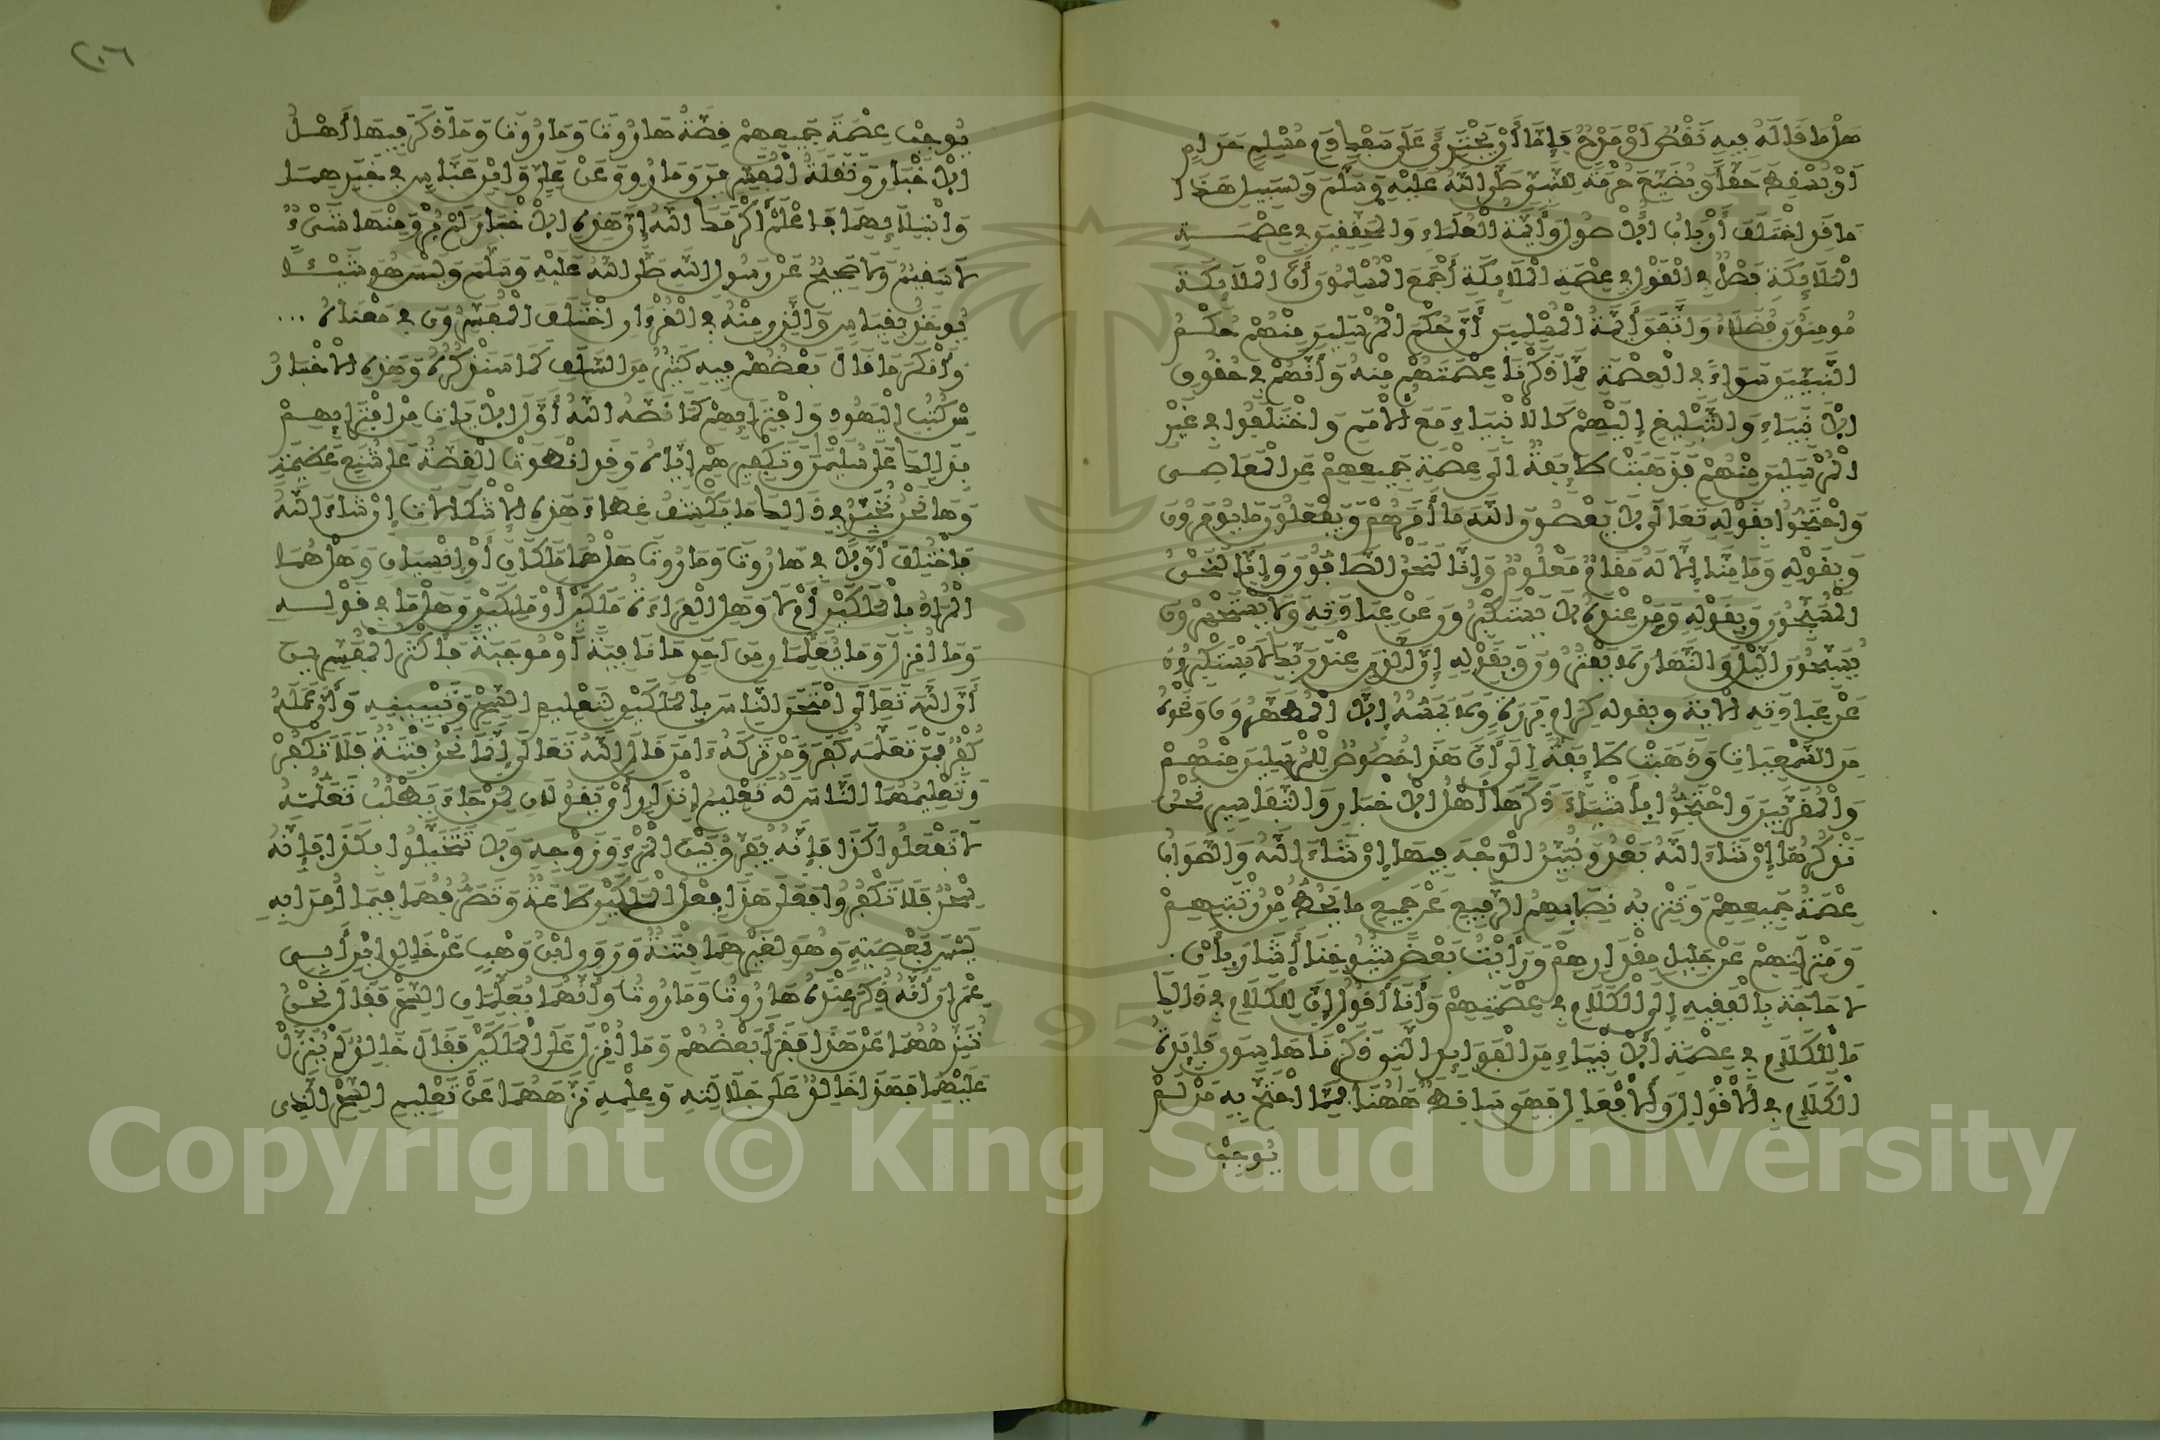 هل ما قاله فيه نقص أو مدح فإما أن يجترئ على سفك دم مسلم حرام
أو يسقط حقا أو يضيع حرمة للنبي صلى الله عليه وسلم وبسبيل هذا
ما قد اختلف أرباب الأصول وأئمة العلماء والمحققين في عصمة
الملائكة فصل في القول في عصمة الملائكة أجمع المسلمون أن الملائكة
مومنون فضلاء واتفق أئمة المسلمين أن حكم المرسلين منهم حكم
النبيين سواء في العصمة مما ذكرنا عصمتهم منه وأنهم في حقوق
الأنبياء والتبليغ إليهم كالأنبياء مع الأمم واختلفوا في غير
المرسلين منهم فذهبت طايفة الى عصمة جميعهم عن المعاصي
واحتجوا بقوله تعالى لا يعصون الله ما أمرهم ويفعلون ما يومرون
وبقوله وما منا إلا له مقام معلوم وإنا لنحن الصافون وإنا لنحن
المسبحون وبقوله ومن عنده لا يستكبرون عن عبادته ولا يستحسرون
يسبحون الليل والنهار لا يفترون وبقوله إن الذين عند ربك لا يستكبرون
عن عبادته الاية وبقوله كرام بررة ولا يمسه إلا المطهرون ونحوه
من السمعيات وذهبت طايفة الى أن هذا خصوص للمرسلين منهم
والمقربين واحتجوا بأشياء ذكرها أهل الأخبار والتفاسير نحن
نذكرها إن شاء الله بعد ونبين الوجه فيها إن شاء الله والصواب
عصمة جميعهم وتنزيه نصابهم الرفيع عن جميع ما يحط من رتبتهم
ومنزلتهم عن جليل مقدارهم ورأيت بعض شيوخنا أشار بأن
لا حاجة بالفقيه إلى الكلام في عصمتهم وأنا أقول إن للكلام في ذلك
ما للكلام في عصمة الأنبياء من الفوايد التي ذكرناها سوى فايدة
الكلام في الأقوال والأفعال فهي ساقطة ههنا فمما احتج به من لم
يوجب
٢٠٦
يوجب عصمة جميعهم قصة هاروت وماروت وما ذكر فيها أهل
الأخبار ونقلة المفسرين وما روي عن علي وابن عباس في خبرهما
وابتلائهما فاعلم أكرمك الله إن هذه الأخبار لم يرو منها شيء
لا سقيم ولا صحيح عن رسول الله صلى الله عليه وسلم وليس هو شيئا
يوخذ بقياس والذي منه في القرءان اختلف المفسرون في معناه ...
وأنكر ما قال بعضهم فيه كثير من السلف كما سنذكره وهذه الأخبار
من كتب اليهود وافترايهم كما نصه الله أول الايات من افترايهم
بذلك على سليمان وتكفيرهم إياه وقد انطوت القصة على شنع عظيمة
وها نحن نحبر في ذلك ما يكشف غطاء هذه الإشكالات إن شاء الله
فاختلف أولا في هاروت وماروت هل هما ملكان أو إنسيان وهل هما
المراد بالملكين أم لا وهل القراءة ملكين أو ملكين وهل ما في قوله
وما أنزل وما يعلمان من احد ما نافية أو موجبة فأكثر المفسرين
أن الله تعالى امتحن الناس بالملكين لتعليم السحر وتبيينه وأن عمله
كفر فمن تعلمه كفر ومن تركه ءامن قال الله تعالى إنما نحن فتنة فلا تكفر
وتعليمهما الناس له تعليم إنذار أي يقولان لمن جاء يطلب تعلمه
لا تفعلوا كذا فإنه يفرق بين المرء وزوجه ولا تتخيلوا بكذا فإنه
سحر فلا تكفروا فعلى هذا فعل الملكين طاعة وتصرفهما فيما أمرا به
ليس بمعصية وهو لغيرهما فتنة وروى ابن وهب عن خالد بن أبي
عمران أنه ذكر عنده هاروت وماروت وأنهما يعلمان السحر فقال نحن
ننزههما عن هذا فقرأ بعضهم وما أنزل على الملكين فقال خالد لم ينزل
عليهما فهذا خالد على جلالته وعلمه نزههما عن تعليم السحر الذي